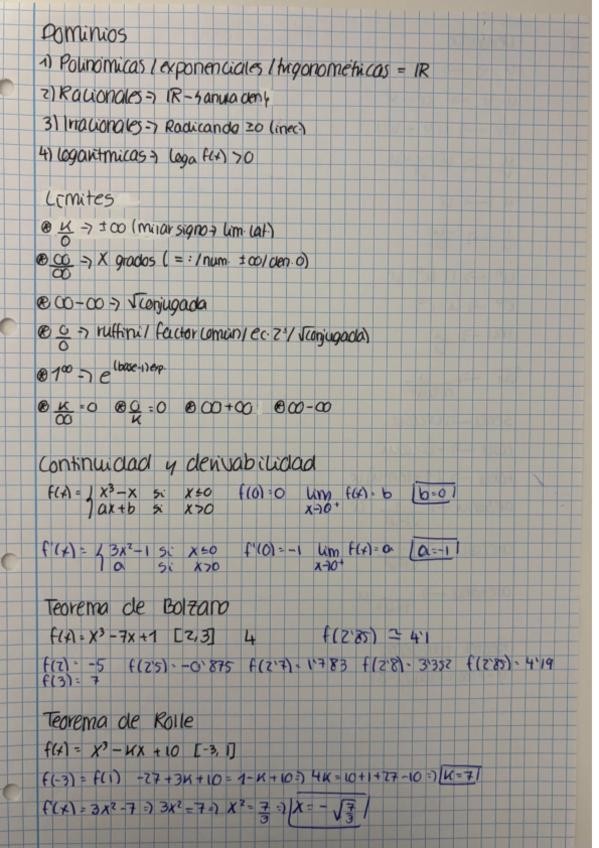 Dominios
1) Polinómicas / exponenciales / trigonométricas = IR
2) Racionales => IR - {anula den}
3) Irracionales => Radicando ≥0 (inec)
4) Logarítmicas => loga f(x) > 0
Límites
⊛ K/0 -> ±∞ (mirar signo -> lim. lat)
⊛ ∞/∞ => X grados ( = : / num. ±∞ / den. 0)
⊛ ∞-∞ => √conjugada
⊛ 0/0 -> ruffini / factor común / ec. 2º / √conjugada)
⊛ 1^∞ -> e^(base-1)exp.
⊛ K/∞ = 0 ⊛ 0/K = 0 ⊛ ∞+∞ ⊛ ∞-∞
Continuidad y derivabilidad
f(x) = { x³-x si x≤0 f(0)=0 lim x->0⁺ f(x) = b b=0
ax+b si x>0
f'(x) = { 3x²-1 si x≤0 f'(0)=-1 lim x->0⁺ f(x)=a a=-1
a si x>0
Teorema de Bolzano
f(x) = x³-7x+1 [2,3] 4 f(2'85) ≃ 4'1
f(2) = -5 f(2'5) = -0'875 f(2'7) = 1'783 f(2'8) = 3'352 f(2'85) = 4'19
f(3) = 7
Teorema de Rolle
f(x) = x³-Kx+10 [-3,1]
f(-3) = f(1) -27+3K+10 = 1-K+10 => 4K = 10+1+27-10 => K=7
f'(x) = 3x²-7 => 3x²=7 => x² = 7/3 => x = -√7/3